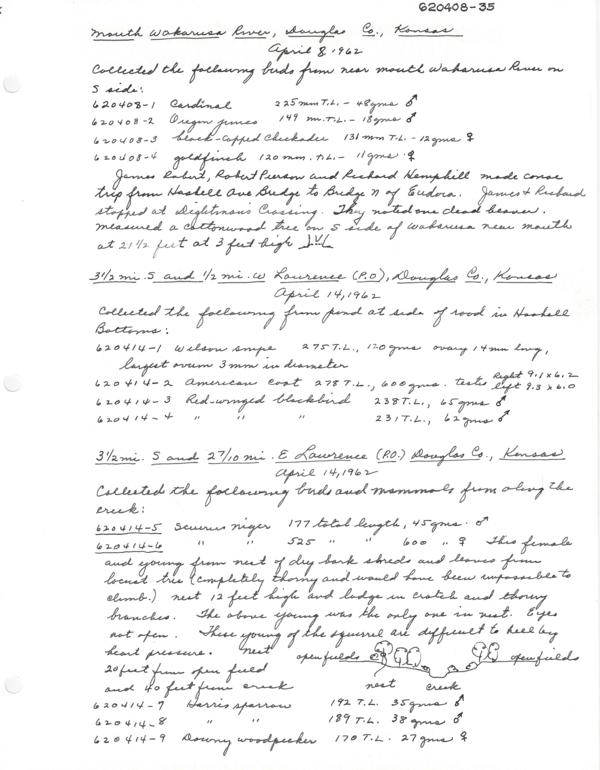 620408-35
Mouth Wakarusa River, Douglas Co., Kansas
April 8, 1962
Collected the following birds from near mouth Wakarusa River on
S side:
620408-1 Cardinal 225 mm T.L. - 48 gms ♂
620408-2 Oregon junco 149 mm. T.L. - 18 gms ♂
620408-3 black-capped Chickadee 131 mm T.L. - 12 gms ♀
620408-4 goldfinch 120 mm. T.L. - 11 gms ♀
James Robert, Robert Pierson and Richard Hemphill made canoe
trip from Haskell Ave Bridge to Bridge N of Eudora. James & Richard
stopped at Dightman's Crossing. They noted one dead beaver.
Measured a cottonwood tree on S side of Wakarusa near mouth
at 21 1/2 feet at 3 feet high
3 1/2 mi. S and 1/2 mi. W Lawrence (P.O), Douglas Co., Kansas
April 14, 1962
Collected the following from pond at side of road in Haskell
Bottoms:
620414-1 Wilson snipe 275 T.L., 120 gms ovary 14 mm long,
largest ovum 3 mm in diameter
620414-2 American coot 278 T.L., 600 gms. testes Right 9.1 x 6.2
left 9.3 x 6.0
620414-3 Red-winged blackbird 238 T.L., 65 gms ♂
620414-4 " " " 231 T.L., 62 gms ♂
3 1/2 mi. S and 2 7/10 mi. E Lawrence (P.O.) Douglas Co., Kansas
April 14, 1962
Collected the following birds and mammals from along the
creek:
620414-5 Sciurus niger 177 total length, 45 gms. ♂
620414-6 " " 525 " " 600 " ♀ This female
and young from nest of dry bark shreds and leaves from
locust tree (completely thorny and would have been impossible to
climb.) nest 12 feet high and lodge in crotch and thorny
branches. The above young was the only one in nest. Eyes
not open. These young of the squirrel are difficult to kill by
heart pressure. nest open fields open fields
20 feet from open field
and 40 feet from creek nest creek
620414-7 Harris sparrow 192 T.L. 35 gms ♂
620414-8 " " 189 T.L. 38 gms ♂
620414-9 Downy woodpecker 170 T.L. 27 gms ♀